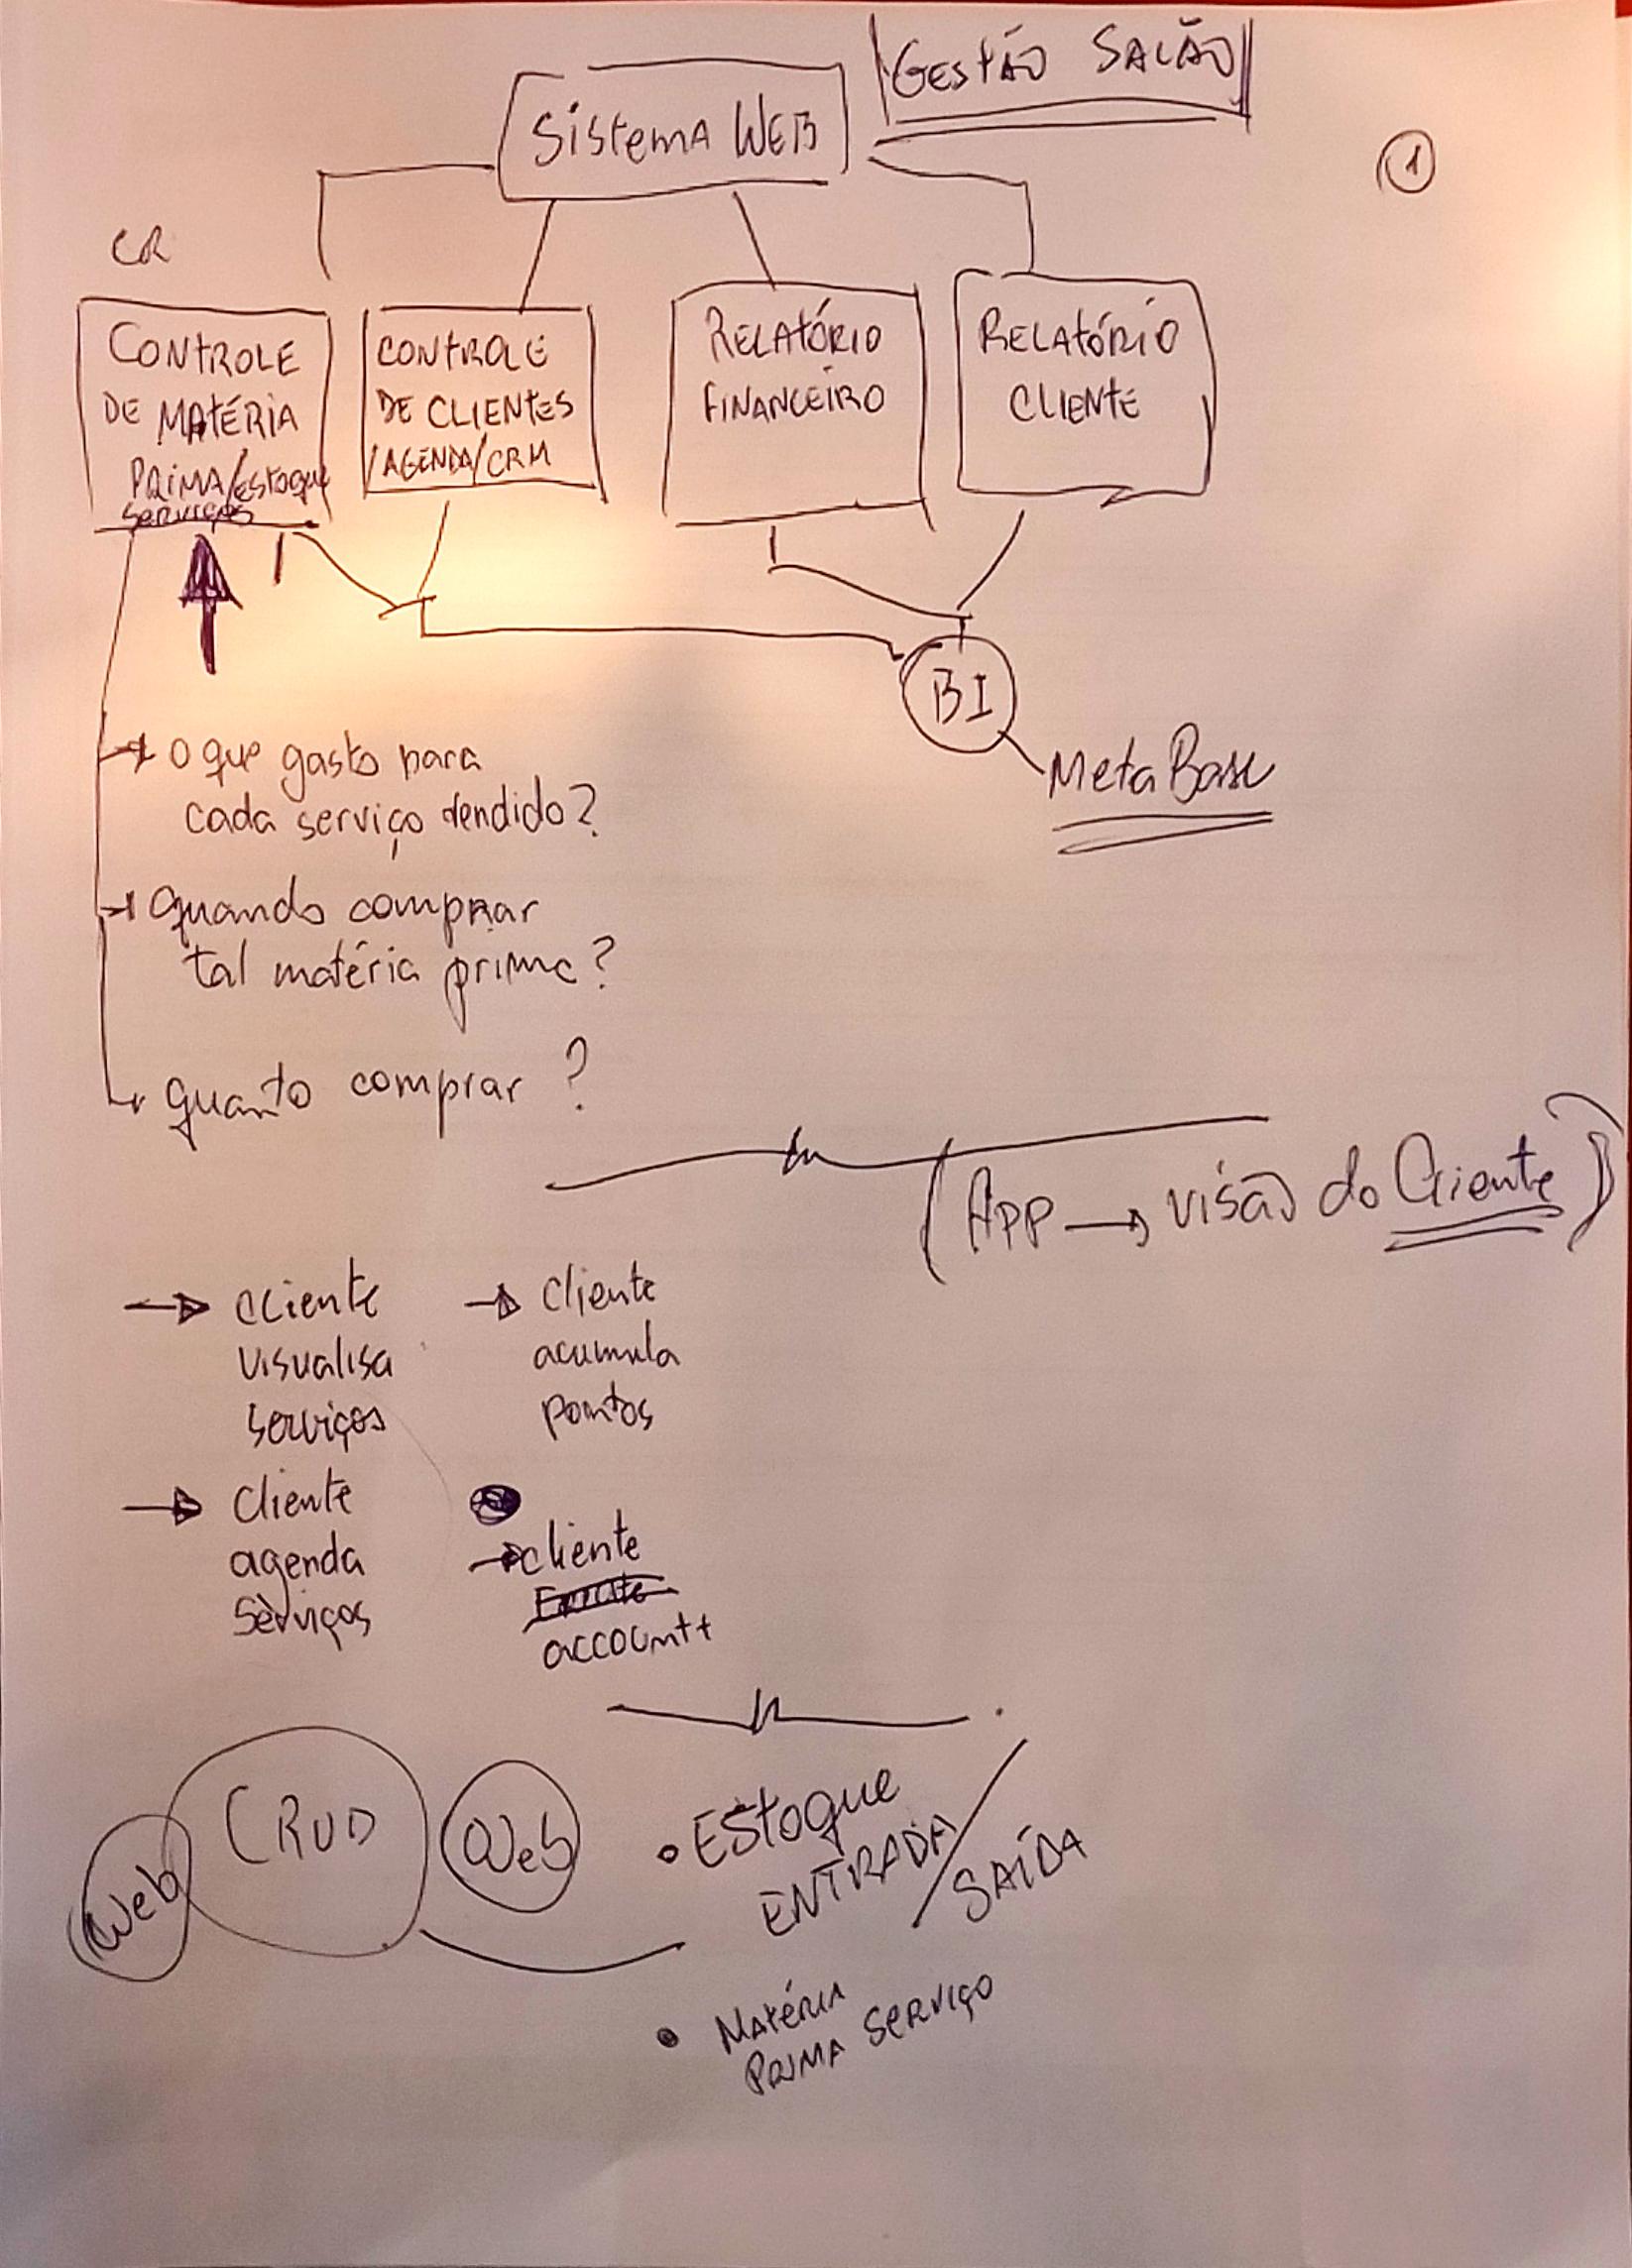 GESTÃO SALÃO
Sistema WEB
1
CR
CONTROLE
DE MATÉRIA
PRIMA/Estoque
Serviços
CONTROLE
DE CLIENTES
/AGENDA/CRM
RELATÓRIO
FINANCEIRO
RELATÓRIO
CLIENTE
BI
MetaBase
o que gasto para
cada serviço vendido?
quando comprar
tal matéria prima?
quanto comprar ?
(App → visão do Cliente)
→ cliente
visualisa
serviços
→ Cliente
agenda
Serviços
→ Cliente
acumula
pontos
→ cliente
account
CRUD
Web
Web
• EStoque
ENTRADA/
SAÍDA
• MATÉRIA
PRIMA SERVIÇO